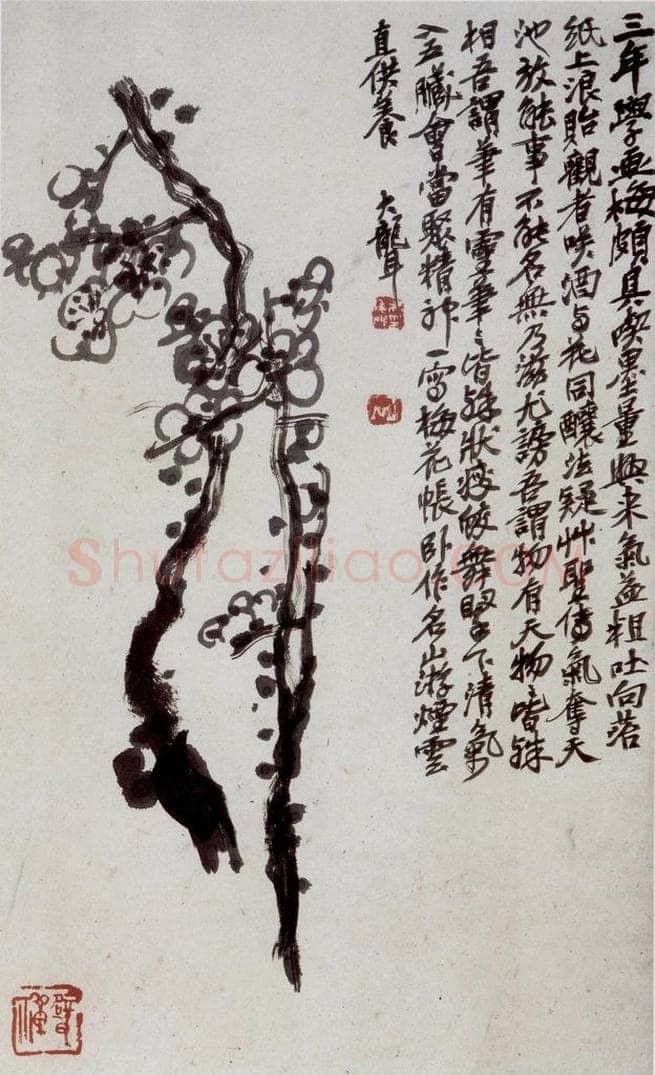 三年學画梅頗具喫墨量興来氣益粗吐向苔
纸上浪貽觀者咲酒与花同釀法疑艸聖傳氣奪天
池放能事不能名無乃滋尤謗吾謂物有天物〻皆殊
相吾謂筆有靈筆〻皆殊狀瘦蛟舞腕下清氣
入五臟會當聚精神一寫梅花帳卧作名山游煙雲
直供養
大聾
Shufaziliao.COM